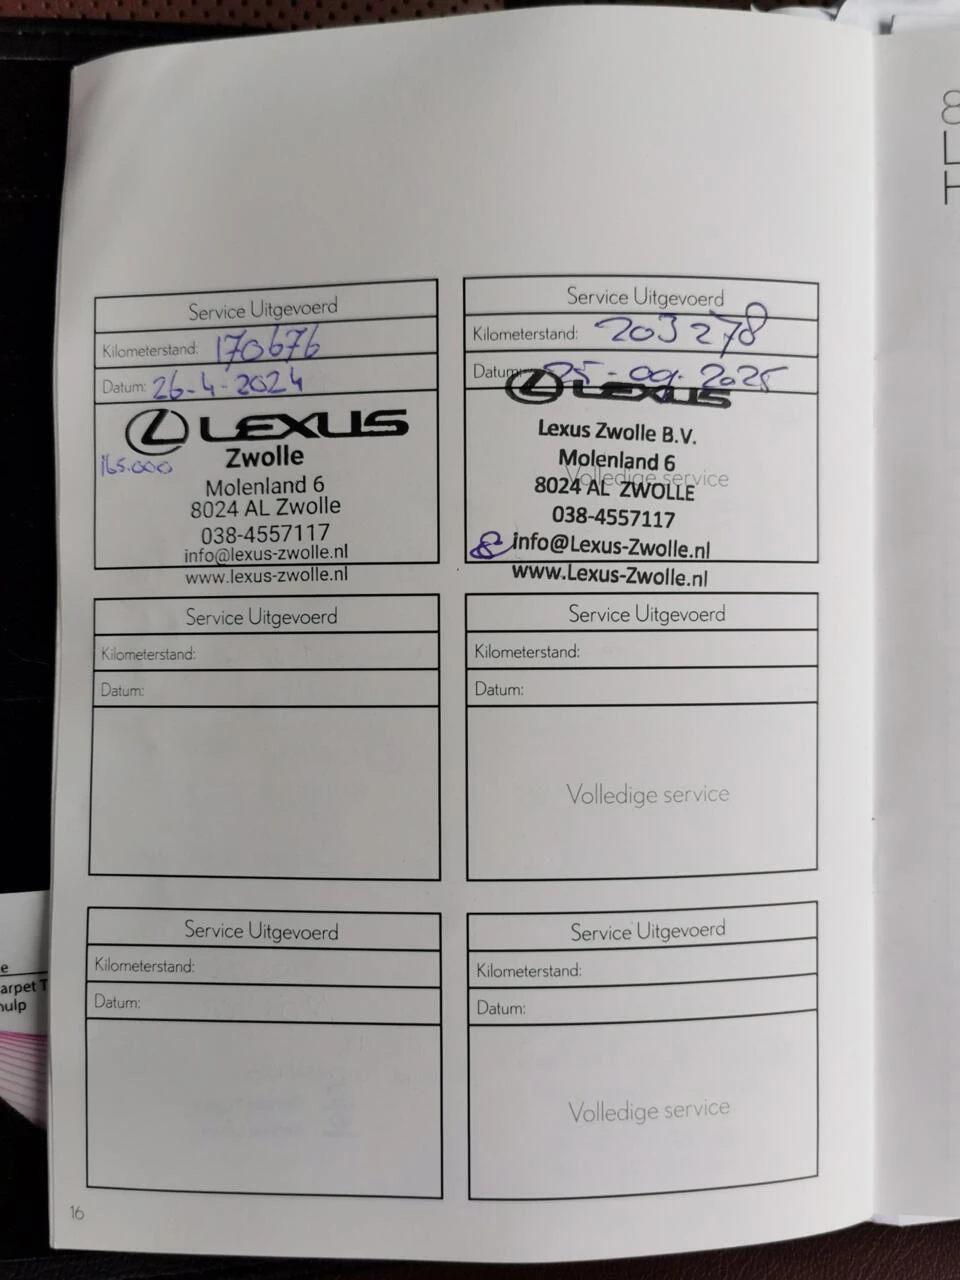 Service Uitgevoerd
Kilometerstand: 170676
Datum: 26-4-2024
LEXUS
165.000
Zwolle
Molenland 6
8024 AL Zwolle
038-4557117
info@lexus-zwolle.nl
www.lexus-zwolle.nl
Service Uitgevoerd
Kilometerstand: 203278
Datum: 25-09-2025
LEXUS
Lexus Zwolle B.V.
Molenland 6
Volledige service
8024 AL ZWOLLE
038-4557117
info@Lexus-Zwolle.nl
www.Lexus-Zwolle.nl
Service Uitgevoerd
Kilometerstand:
Datum:
Service Uitgevoerd
Kilometerstand:
Datum:
Volledige service
Service Uitgevoerd
Kilometerstand:
Datum:
Service Uitgevoerd
Kilometerstand:
Datum:
Volledige service
16
8
L
H
e
arpet T
hulp